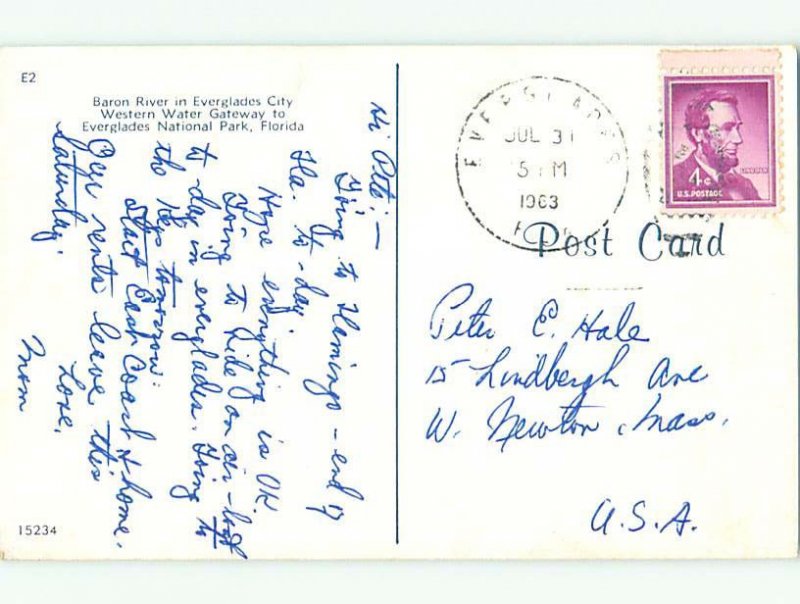 E2
Baron River in Everglades City
Western Water Gateway to
Everglades National Park, Florida
Hi Pete:—
Going to Flamingo – end of
Fla. to-day.
Hope everything is OK
Going to ride on air-boat
to-day in everglades. Going to
the Keys tomorrow.
Start East Coast & home.
Our rents leave this
Saturday.
Love,
Mom
15234
EVERGLADES
JUL 31
5 PM
1963
FLA.
4¢
LINCOLN
U.S. POSTAGE
Post Card
Peter E. Hale
15 Lindbergh Ave
W. Newton, Mass.
U.S.A.